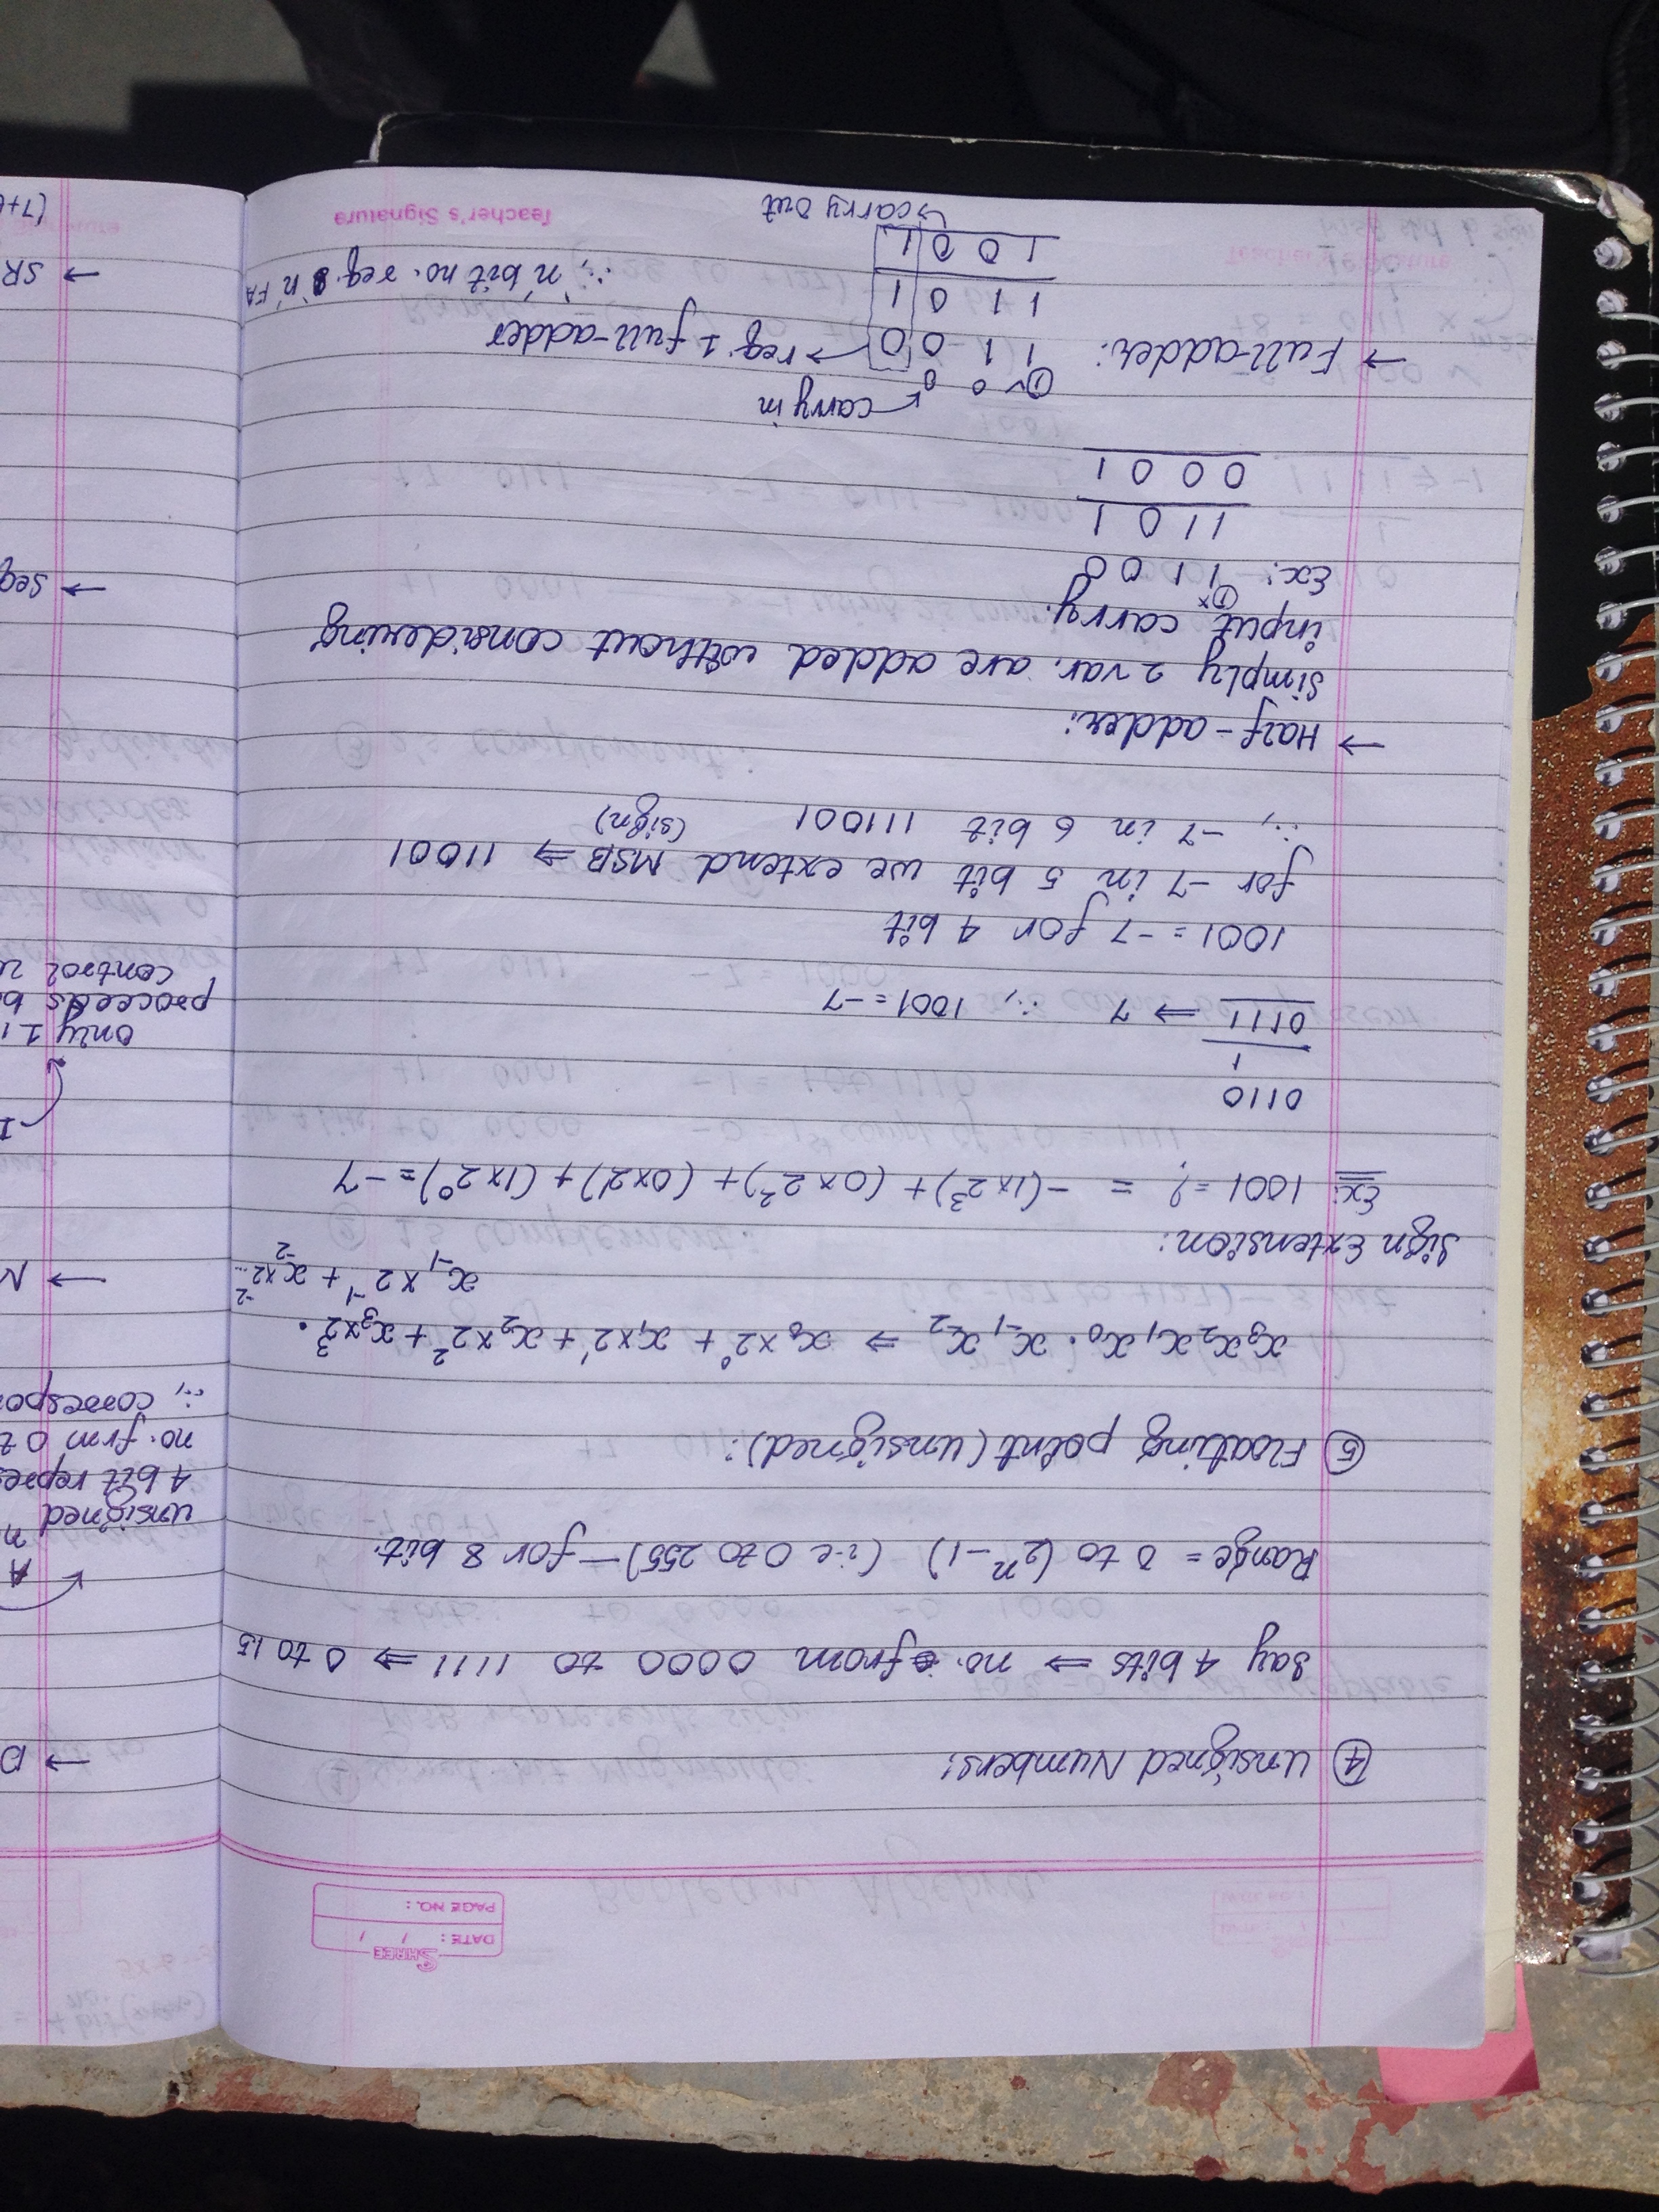 SHREE
DATE: / /
PAGE NO.:
④ Unsigned Numbers:
Say 4 bits ⇒ no. from 0000 to 1111 ⇒ 0 to 15
Range = 0 to (2ⁿ-1) (i.e 0 to 255) — for 8 bit.
⑤ Floating point (Unsigned):
x₃x₂x₁x₀. x₋₁x₋₂ ⇒ x₀×2⁰ + x₁×2¹ + x₂×2² + x₃×2³.
x₋₁×2⁻¹ + x₋₂×2⁻²...
Sign Extension:
Ex: 1001 = ? = -(1×2³) + (0×2²) + (0×2¹) + (1×2⁰) = -7
0110
1
0111 ⇒ 7 ∴, 1001 = -7
1001 = -7 for 4 bit
for -7 in 5 bit we extend MSB ⇒ 11001
(sign)
∴, -7 in 6 bit 111001
→ Half-adder:
Simply 2 var. are added without considering
input carry.
① ×
Ex: 1 1 0 0
1 1 0 1
0 0 0 1
carry in
① ✓ 0 0
→ Full-adder: 1 1 0 0 → req. 1 full-adder
1 1 0 1 ∴, 'n' bit no. req. 'n' FA
1 0 0 1
carry out
Teacher's Signature
→ D
A
n
unsigned
4 bit repres
no. frm 0 t
∴, correspo
→ N
I
only 1 i
proceeds b
control u
→ seq
→ SR
(7+